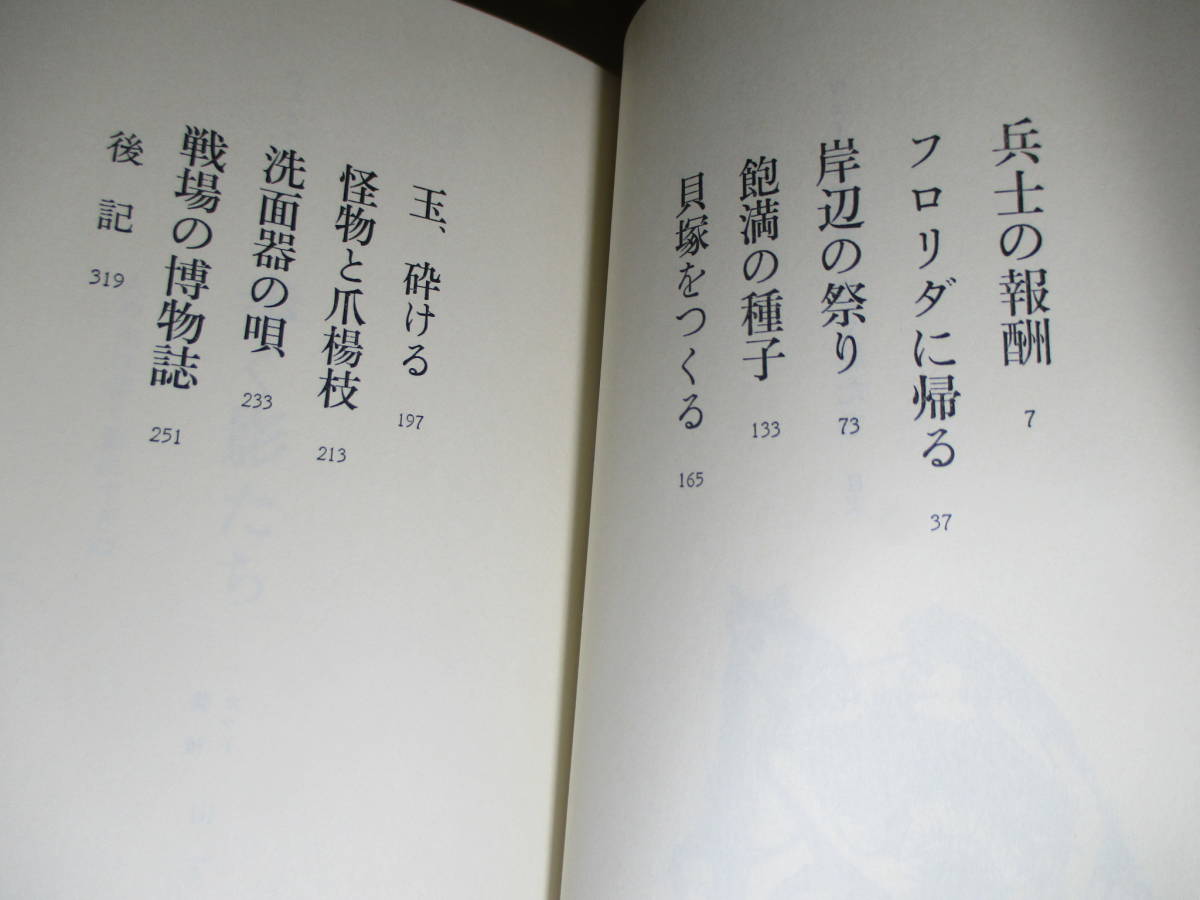 兵士の報酬 7
フロリダに帰る 37
岸辺の祭り 73
飽満の種子 133
貝塚をつくる 165
玉、砕ける 197
怪物と爪楊枝 213
洗面器の唄 233
戦場の博物誌 251
後記 319